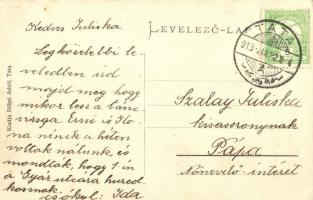 Kedves Juliska.
LEVELEZŐ-LAP
Legközelebbi le-
veledben ird
majd meg hogy
mikor lesz a tánc
vizsga Erzsi is Ilo
na nénék a héten
voltak nálunk, és
mondták, hogy 1-én
a Gyár utcára hurcol
kosznak.
csókol: Ida
TATA
Szalay Juliska
kisasszonynak
Pápa
Nőnevelő-intézet
Kiadja Nobel Adolf, Tata